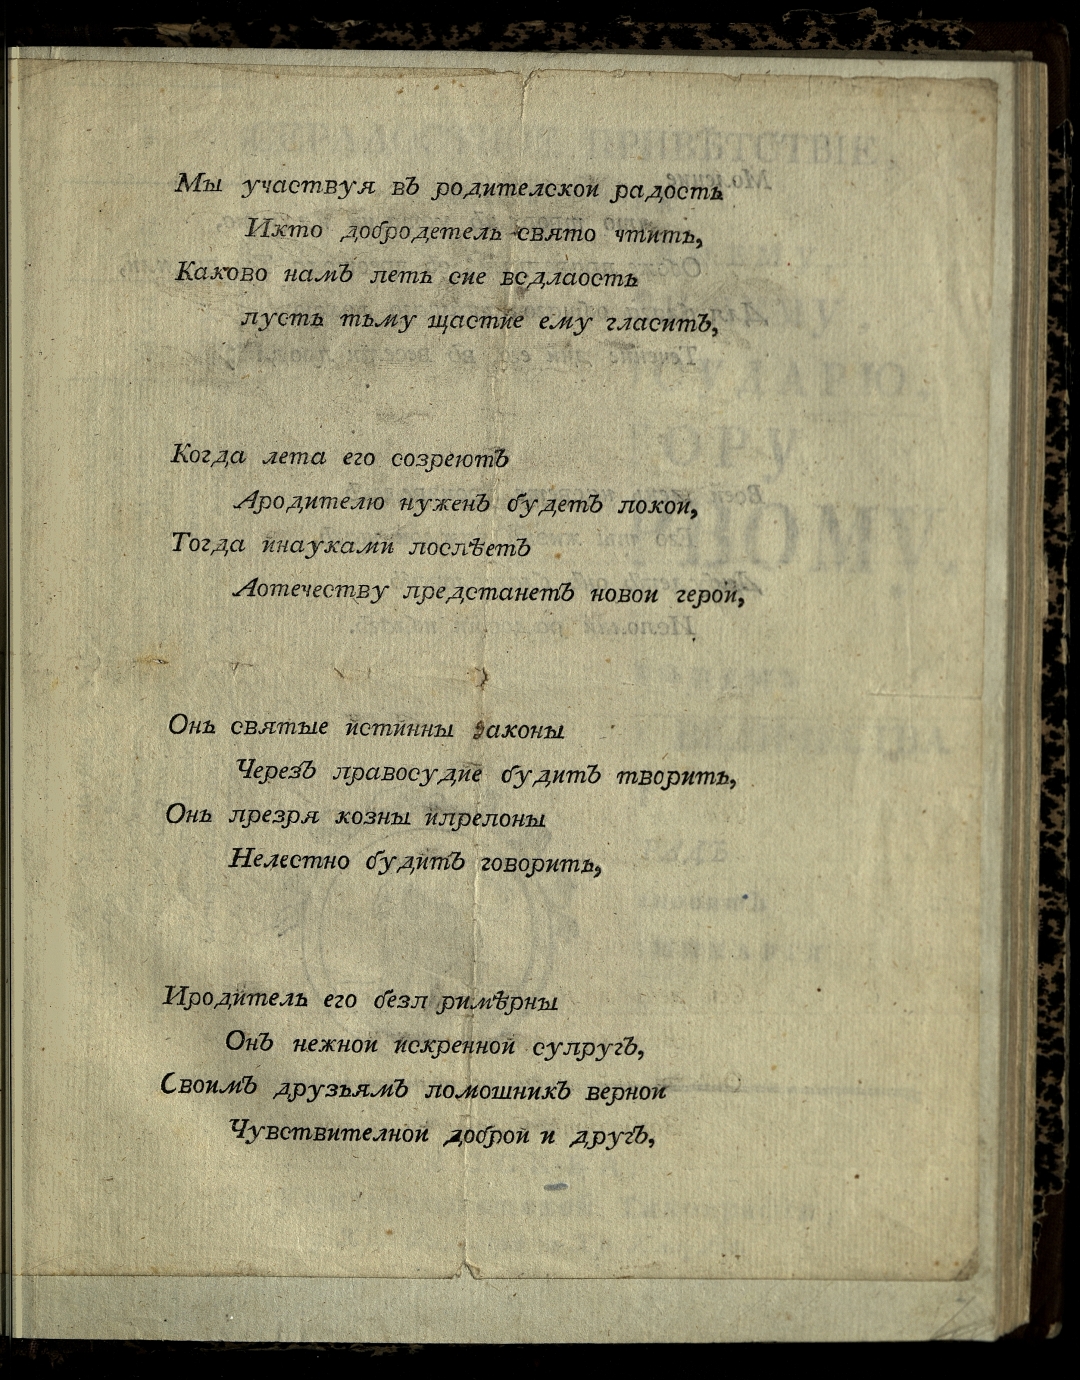 Мы участвуя вЪ родителскои радость
Икто добродетель свято чтить,
Каково намЪ леть сие
пусть тьму щастйе ему гласитЪ,
Когда лета его созреютЪ
Ародителю нуженЪ будетЪ покои,
Тогда йнауками поспѣетЪ
Аотечеству предстанетЪ новои герой,
Онь святые йстйнны законы
ЧерезЪ правосудйе будитЪ творить,
Онь презря козны йпрелоны
Нелестно будйтЪ говорить,
Иродйтель его безп римѣрны
ОнЪ нежнои йскреннои супругЪ,
СвоимЪ друзьямЪ помошникЪ вернои
Чувствителнои доброй и другЪ,